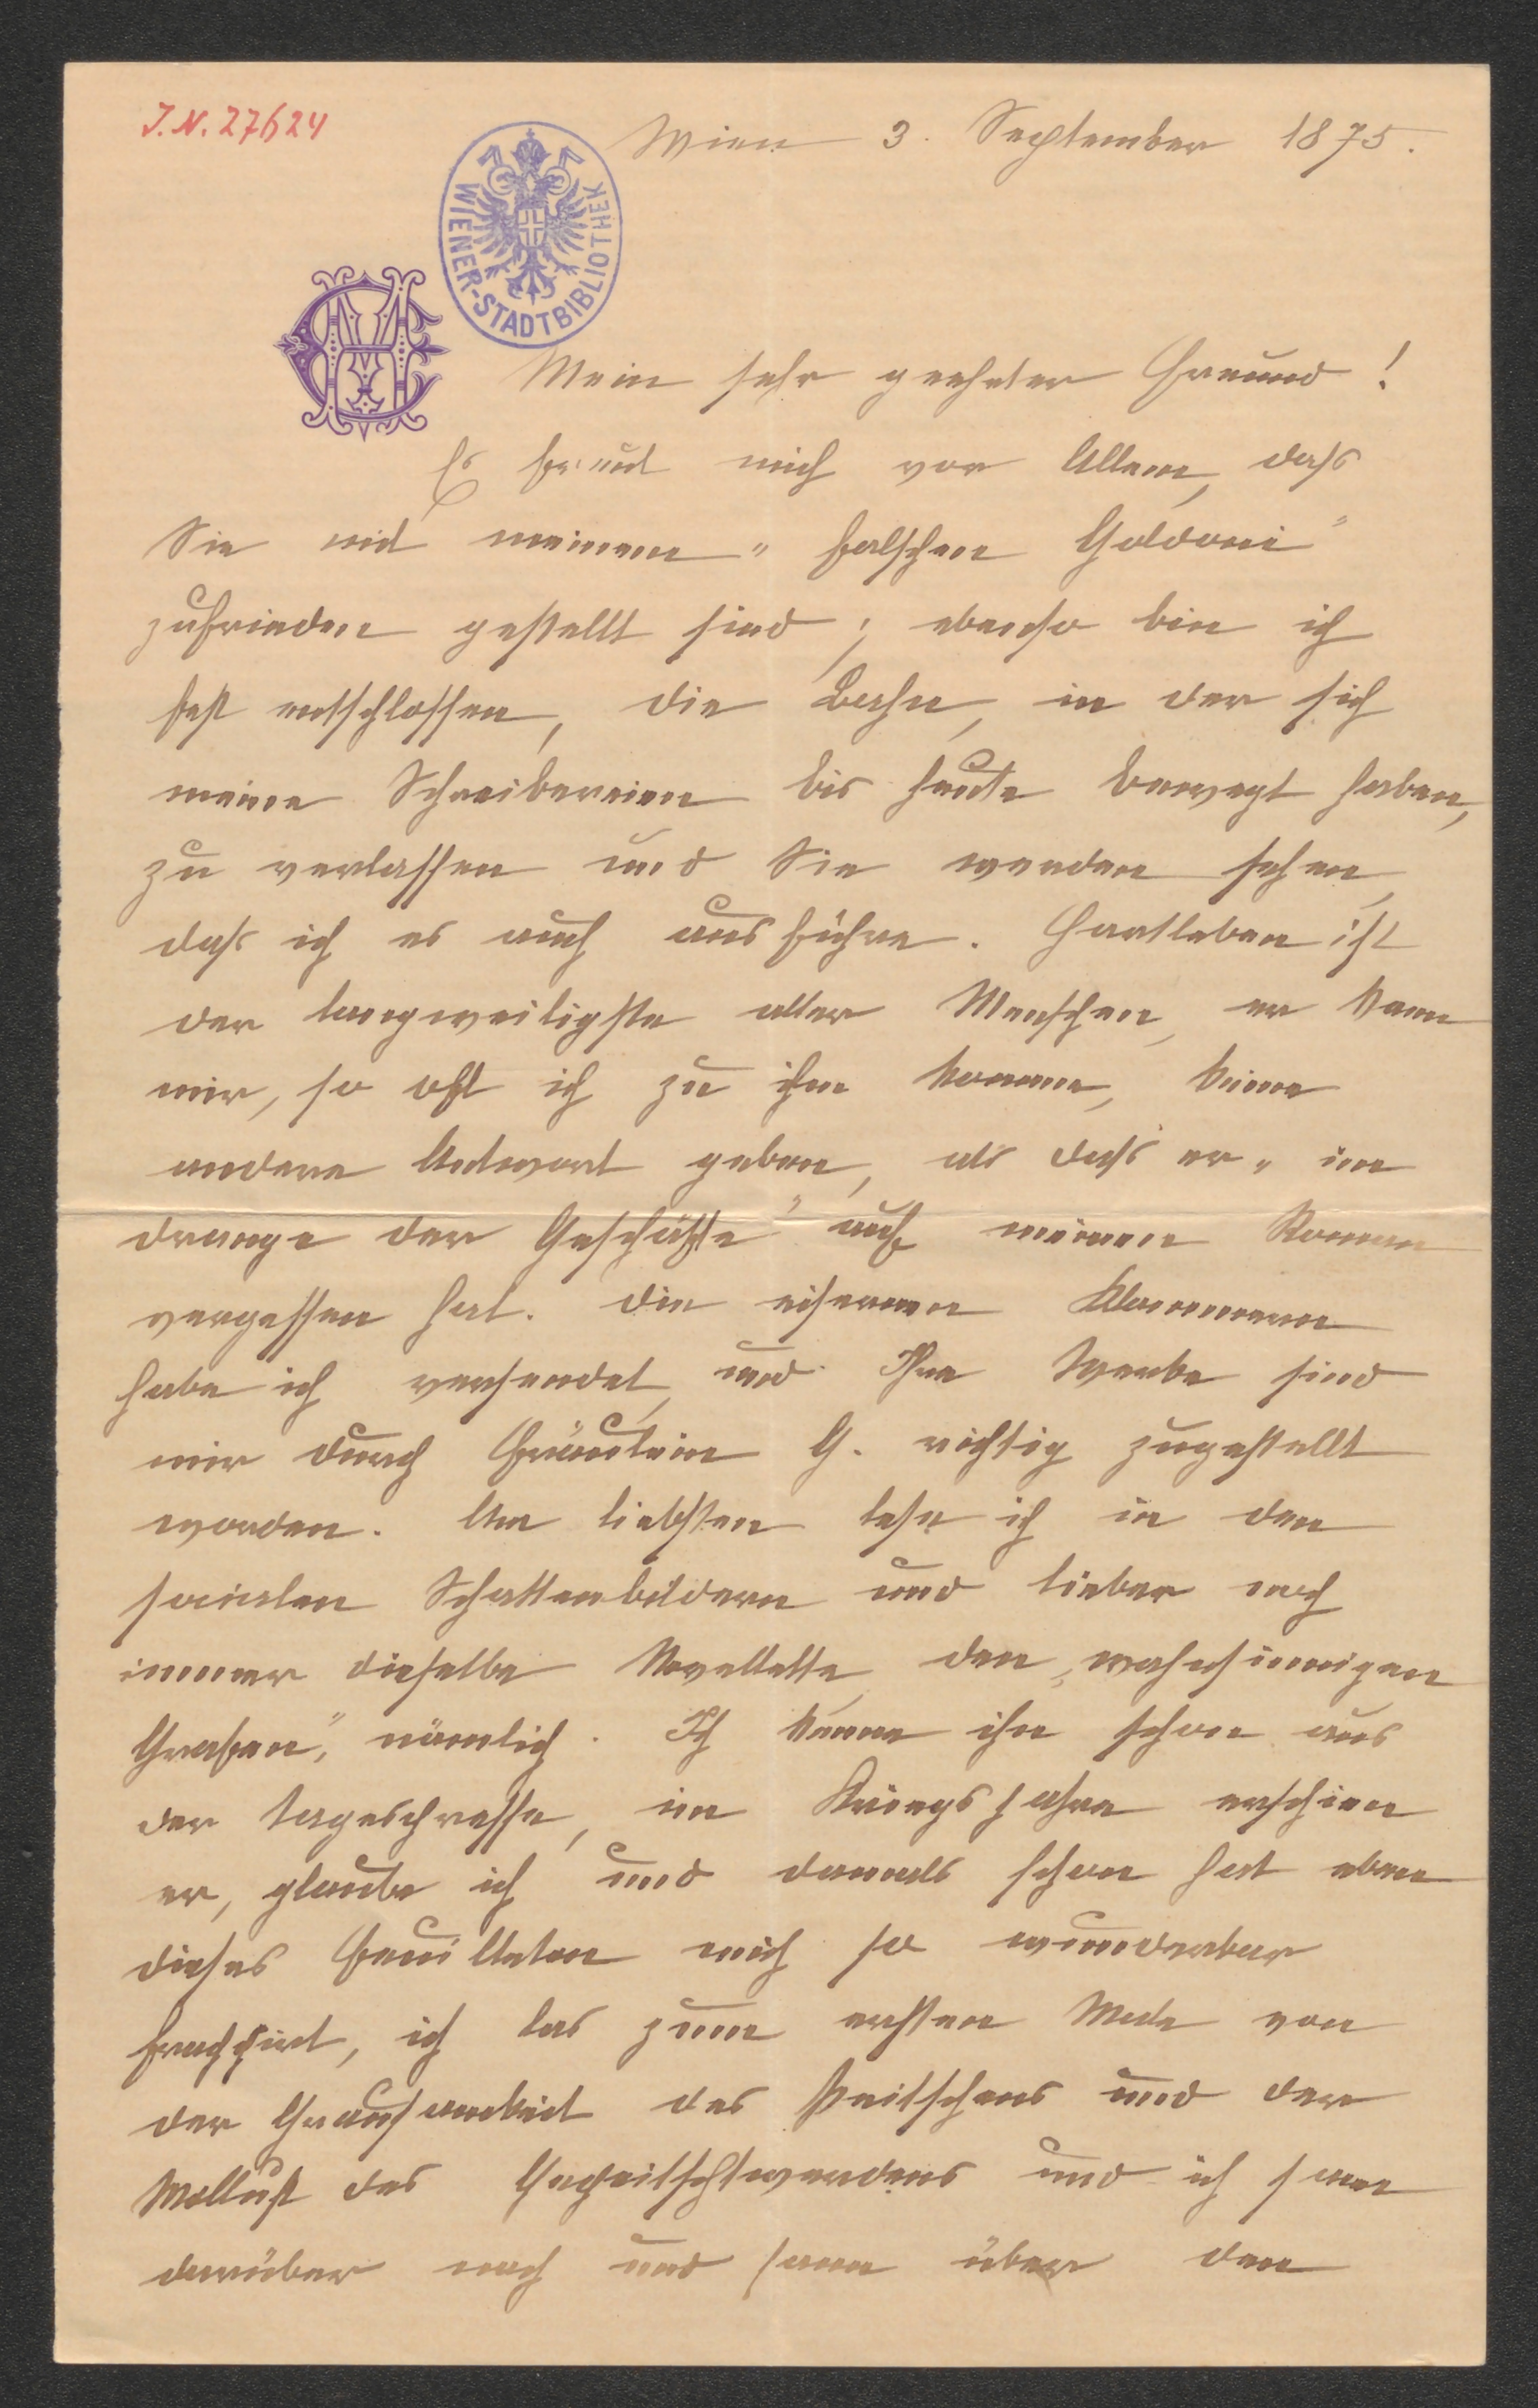 J.N. 27624
Wien 3. September 1875.
WIENER-STADTBIBLIOTHEK
Mein sehr geehrter Freund!
Es freut mich vor Allem, daß
Sie mit meinem „falschen Goldoni"
zufrieden gestellt sind; ebenso bin ich
fest entschlossen, die Bahn, in der sich
meine Schreibereien bis heute bewegt haben,
zu verlassen und Sie werden sehen,
daß ich es auch ausführe. Hartleben ist
der langweiligste aller Menschen, er kann
mir, so oft ich zu ihm komme, keine
andere Antwort geben, als daß er „im
Drange der Geschäfte" auf meinen Roman
vergessen hat. Die eisernen Klammern
habe ich versendet, und Ihre Werke sind
mir durch Fräulein G. richtig zugestellt
worden. Am liebsten lese ich in den
socialen Schattenbildern und lieber noch
immer dieselbe Novellette, den „wahnsinnigen
Grafen", nämlich. Ich kenne ihn schon aus
der Tagespresse, im Kriegsjahre erschien
er, glaube ich und damals schon hat eben
dieses Feuilleton mich so wunderbar
frappirt, ich las zum ersten Male von
der Grausamkeit des Peitschens und der
Wollust des Gepeitschtwerdens und ich sann
darüber nach und sann über den